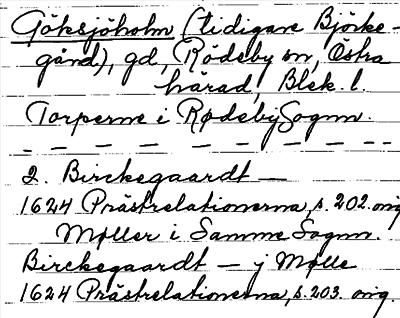 Göksjöholm (tidigare Björke-
gård), gd, Rödeby sn, Östra
härad, Blek. l.
Torperne i Rødeby Sognn.
2. Birckegaardt —
1624 Prästrelationerna, s. 202. orig.
Møller i Samme Sognn.
Birckegaardt — j Mølle
1624 Prästrelationerna, s. 203. orig.